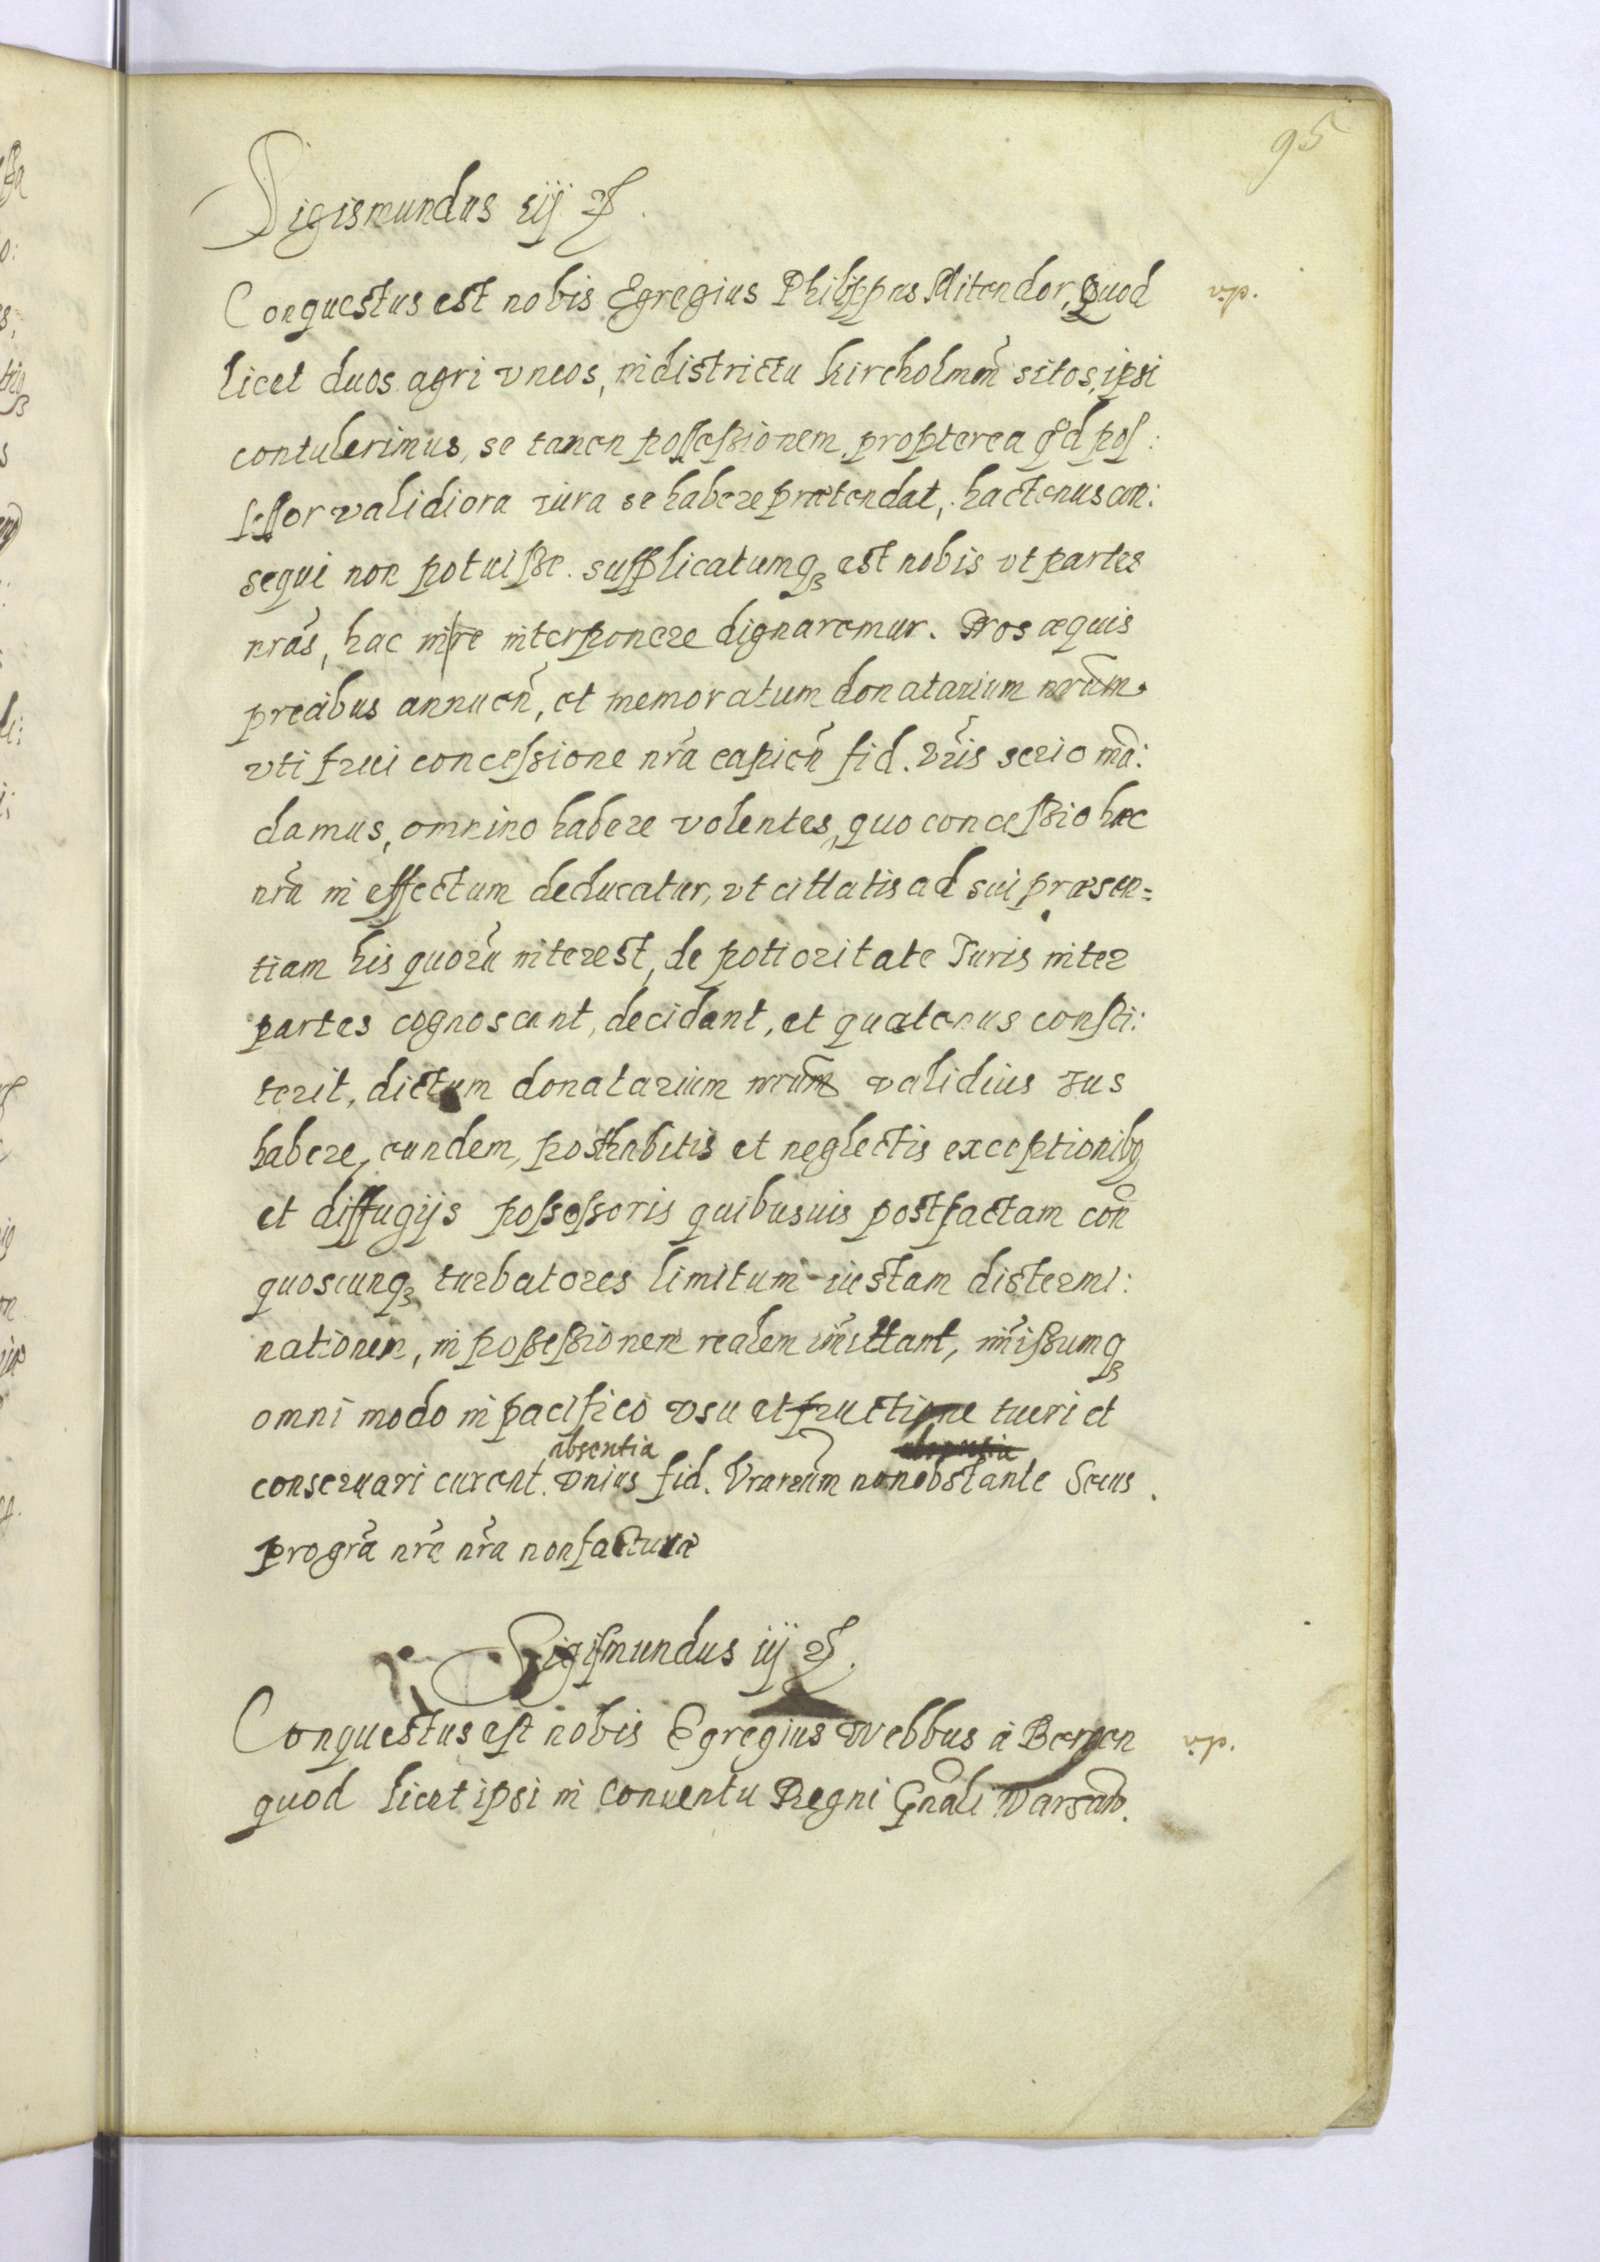 95
Sigismundus iij
Conquestus est nobis Egregius Philippus Mitendor, quod
licet duos agri vncos, in districtu kircholmeñ sitos, ipsi
contulerimus, se tamen possessionem, propterea qd pos:
sessor validiora iura se habere prætendat, hactenus con:
sequi non potuisse. supplicatumq est nobis vt partes
nrãs, hac in re interponere dignaremur. Nos æquis
precibus annueñ, et memoratum donatarium nrum
vti frui concessione nrã capieñ fid. Vris serio mã:
damus, omnino habere volentes, quo concessio hæc
nrã in effectum deducatur, vt cittatis ad sui præsen=
tiam his quorũ interest, de potioritate Iuris inter
partes cognoscant, decidant, et quatenus consti:
terit, dictum donatarium nrum validius Ius
habere, eundem, posthabitis et neglectis exceptionibq
et diffugijs possessoris quibusuis post factam coñ
quoscunq turbatores limitum iustam distermi:
nationem, in possessionem realem im̃ittant, im̃issumq
omni modo in pacifico vsu et fructione tueri et
absentia
conseruari curent. vnius fid. Vrarum non obstante Secus
pro grã nrẽ nrã non facturæ
Sigismundus iij
Conquestus est nobis Egregius Webbus à Bergen
quod licet ipsi in Conuentu Regni Gnãli Varsauo.